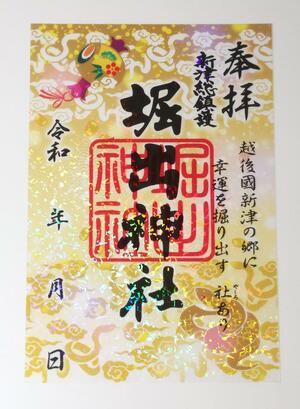 奉拝
新津総鎮護
越後國新津の郷に
幸運を掘り出す
社あり
やしろ
堀出神社
堀出神社
令和 年 月 日